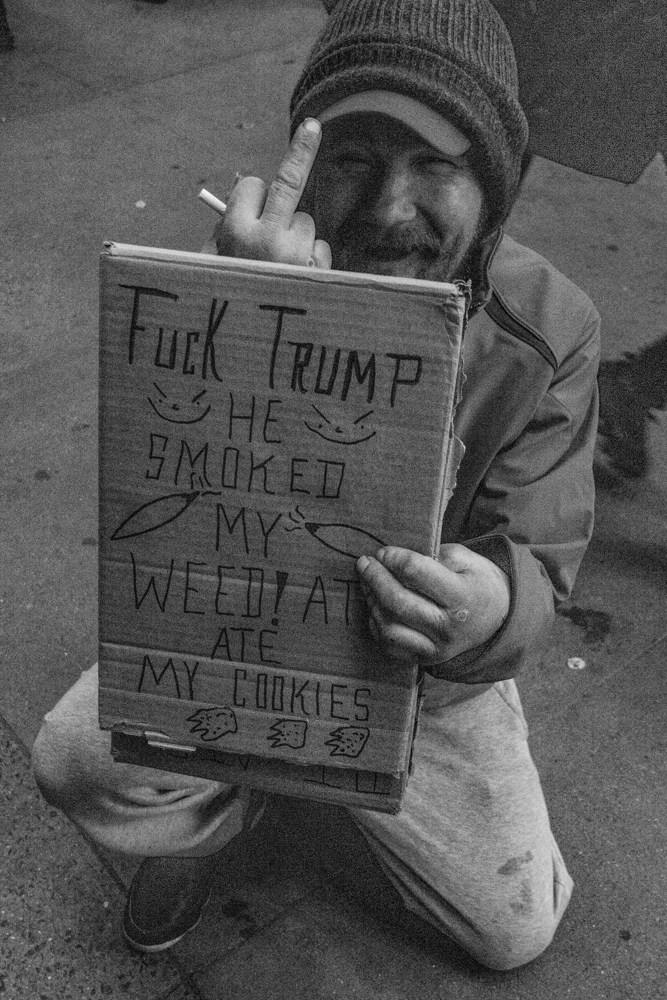 FUCK TRUMP
HE
SMOKED
MY
WEED! AT
ATE
MY COOKIES